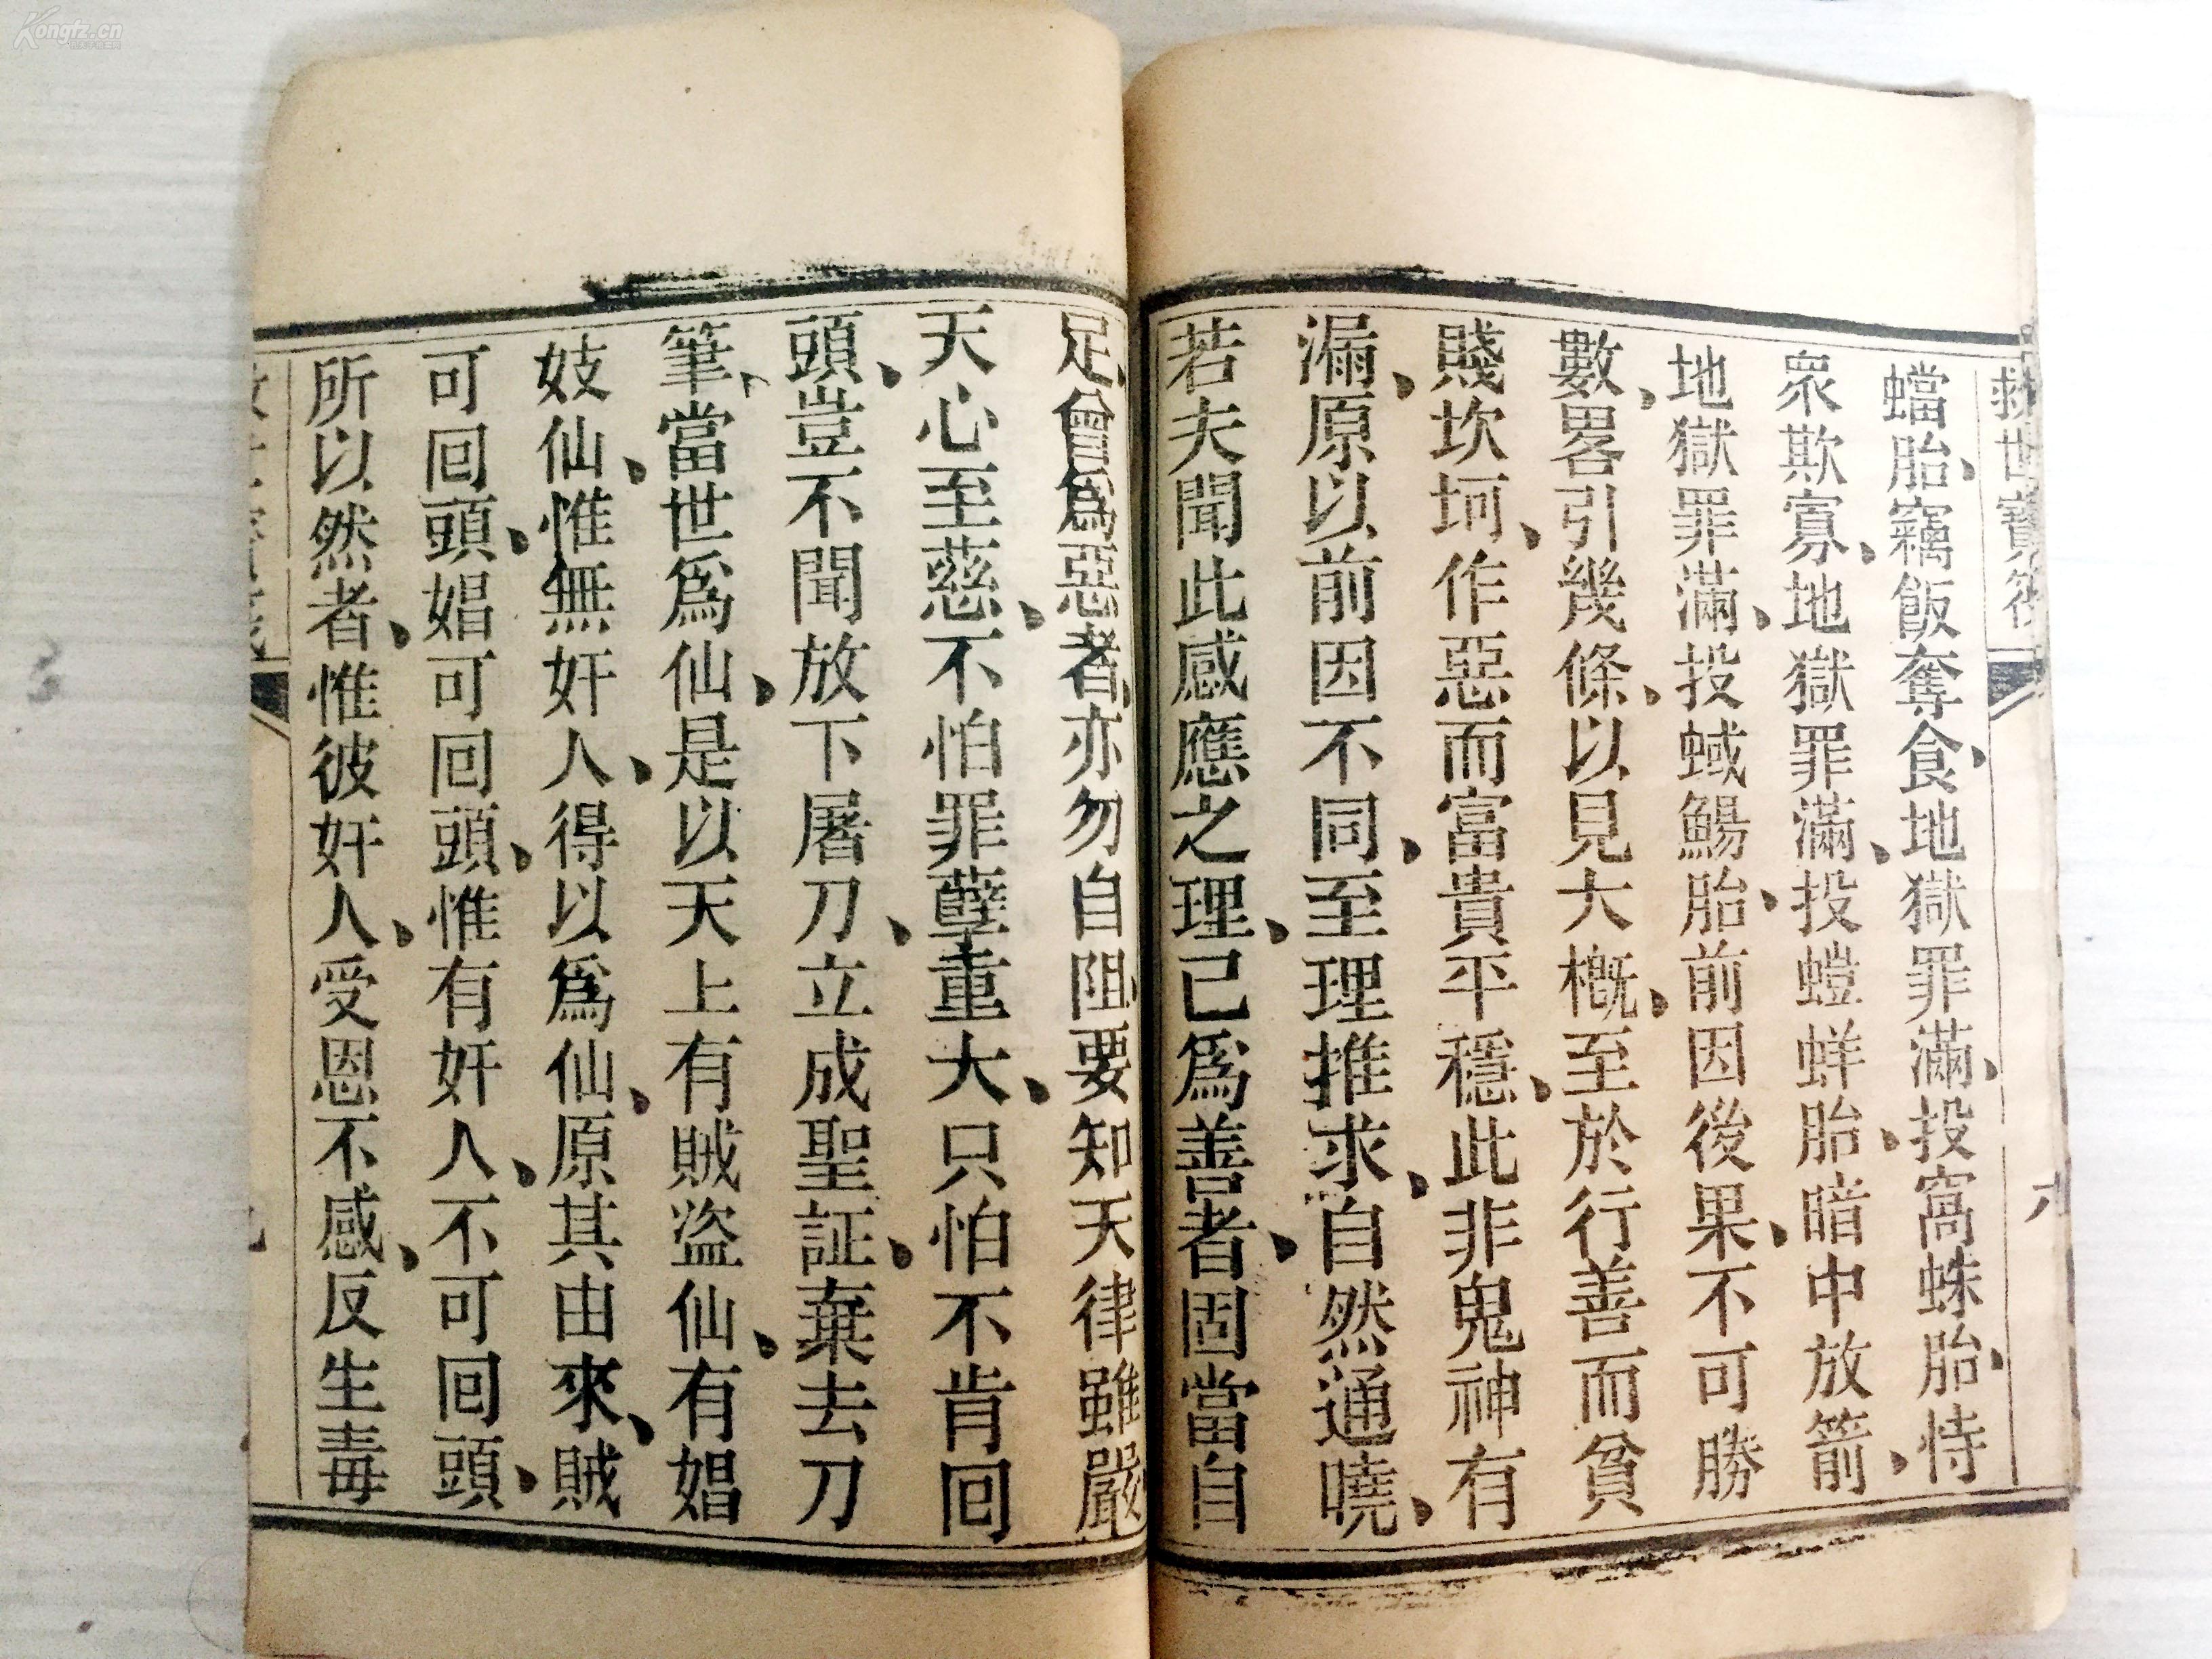 Kongfz.cn
救世寶筏
蟷胎、竊飯奪食、地獄罪滿、投窩蛛胎、恃
衆欺寡、地獄罪滿、投螘蛘胎、暗中放箭、
地獄罪滿、投蜮鰑胎、前因後果、不可勝
數、畧引幾條、以見大概、至於行善而貧
賤坎坷、作惡而富貴平穩、此非鬼神有
漏、原以前因不同、至理推求、自然通曉、
若夫聞此感應之理、已爲善者、固當自
足、曾爲惡者、亦勿自阻、要知天律雖嚴
天心至慈、不怕罪孽重大、只怕不肯回
頭、豈不聞放下屠刀、立成聖証、棄去刀
筆、當世爲仙、是以天上有賊盜仙、有娼
妓仙、惟無奸人、得以爲仙、原其由來、賊
可回頭、娼可回頭、惟有奸人、不可回頭、
所以然者、惟彼奸人、受恩不感、反生毒